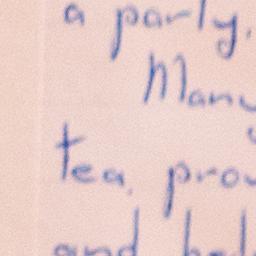 a party.
Many
tea.
and